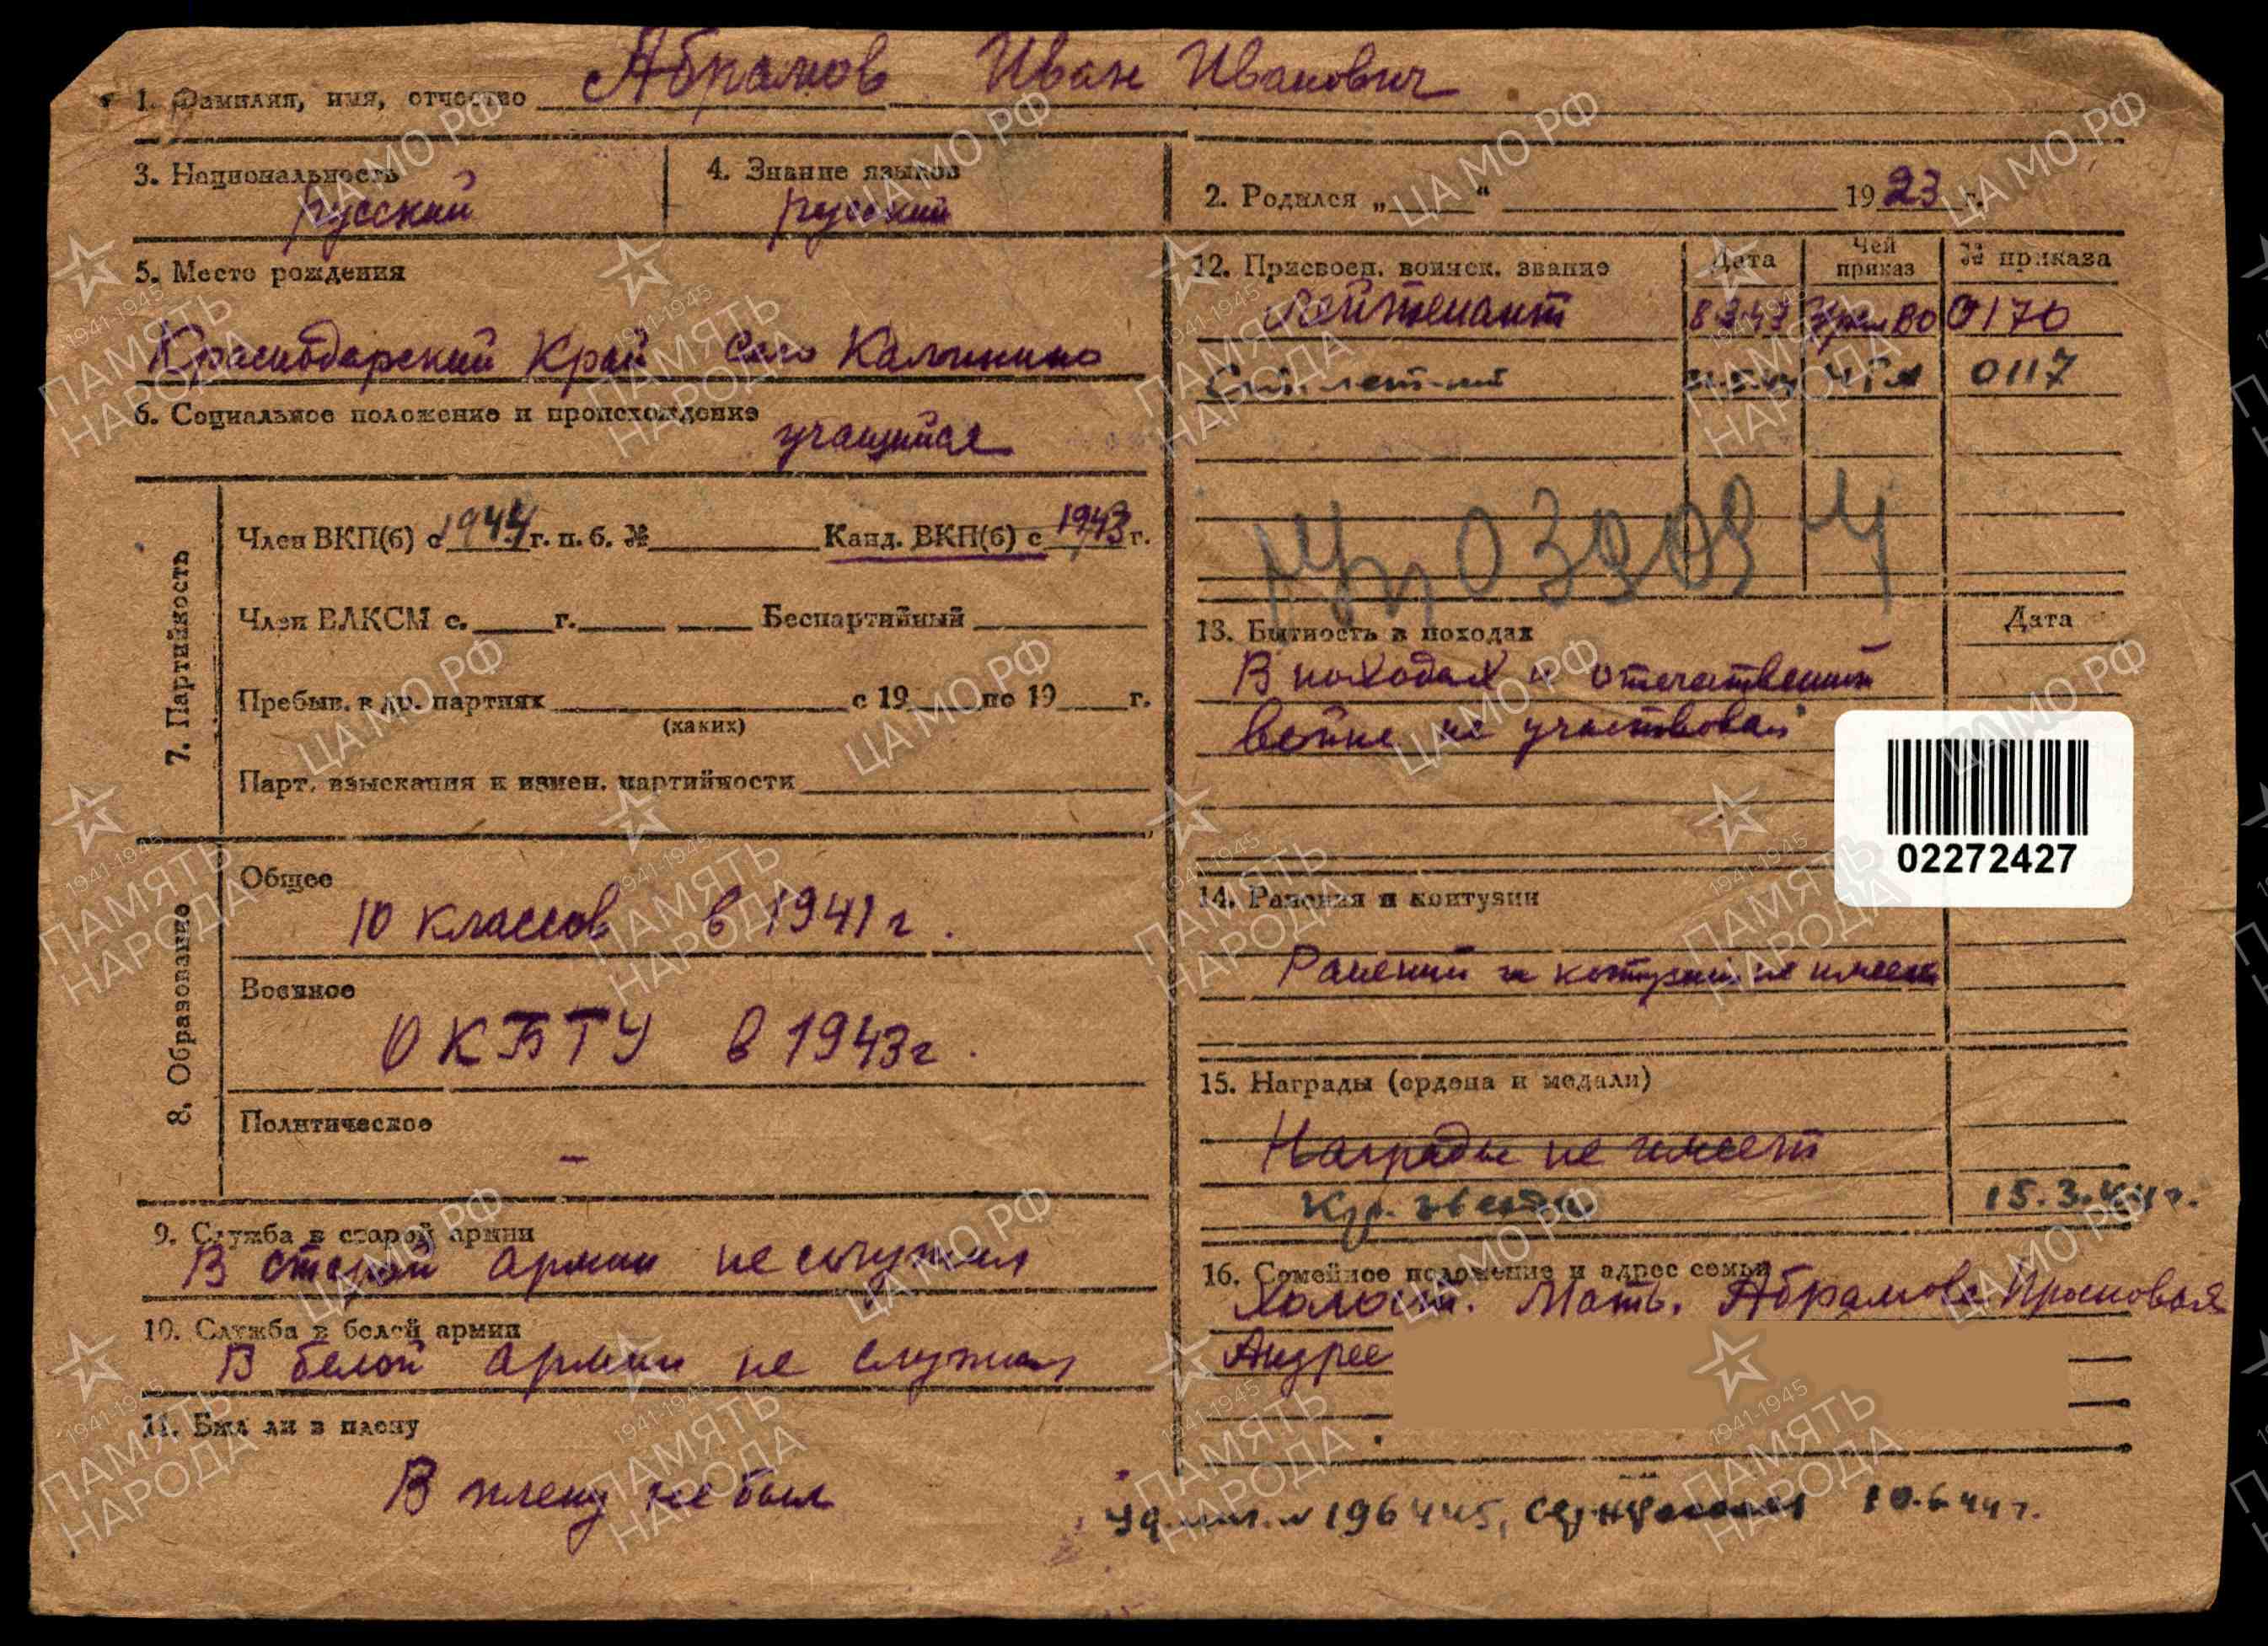 1. Фамилия, имя, отчество Абрамов Иван Иванович
3. Национальность русский
4. Знание языков русский
2. Родился „ “ 1923 г.
5. Место рождения
Краснодарский Край село Калинино
6. Социальное положение и происхождение учащийся
7. Партийность
Член ВКП(б) с 1944 г. п. б. № Канд. ВКП(б) с 1943 г.
Член ВЛКСМ с. г. Беспартийный
Пребыв. в др. партиях с 19 по 19 г.
(каких)
Парт. взыскания и измен. партийности
8. Образование
Общее
10 классов в 1941 г.
Военное
ОКБТУ в 1943г.
Политическое
–
9. Служба в старой армии
В старой армии не служил
10. Служба в белой армии
В белой армии не служил
11. Был ли в плену
В плену не был
12. Присвоен. воинск. звание Дата Чей приказ № приказа
Лейтенант УралВО 0170
0117
03909
13. Бытность в походах Дата
В походах и отечественной
войне не участвовал
02272427
14. Ранения и контузии
Ранений и контузий не имеет
15. Награды (ордена и медали)
Награды не имеет
Кр. звезда 15.3.44г.
16. Семейное положение и адрес семьи
Холост. Мать. Абрамова Просковья
Андрее
Уд. лич. № 196445, 10.6.44 г.
ЦА МО РФ
1941-1945
ПАМЯТЬ
НАРОДА